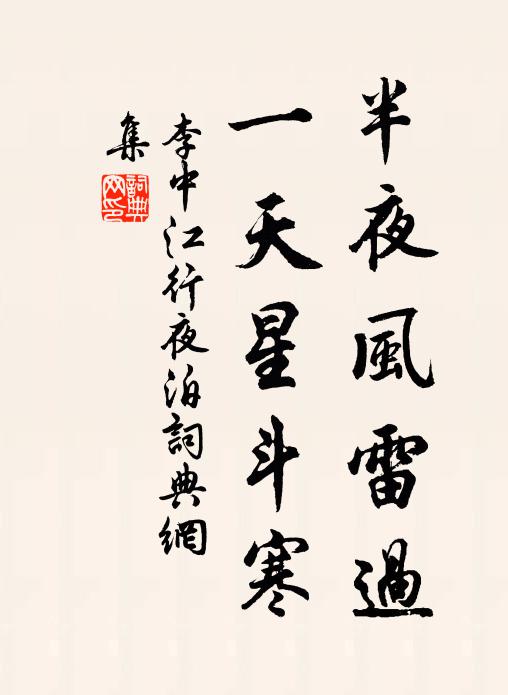 半夜風雷過
一天星斗寒
李中江行夜泊詞典網
集
詞典
网印